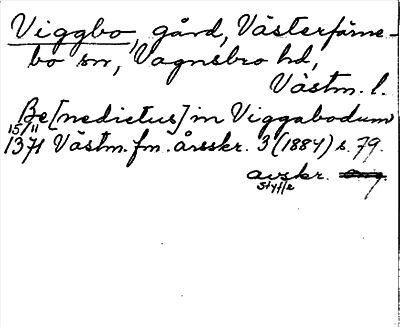 Viggbo, gård, Västerfärne-
bo sn, Vagnsbro hd,
Västm. l.
Be[nedictus] in Viggabodum
15/11
1371 Västm. fm. årsskr. 3 (1884) s. 79.
avskr. orig.
Styffe